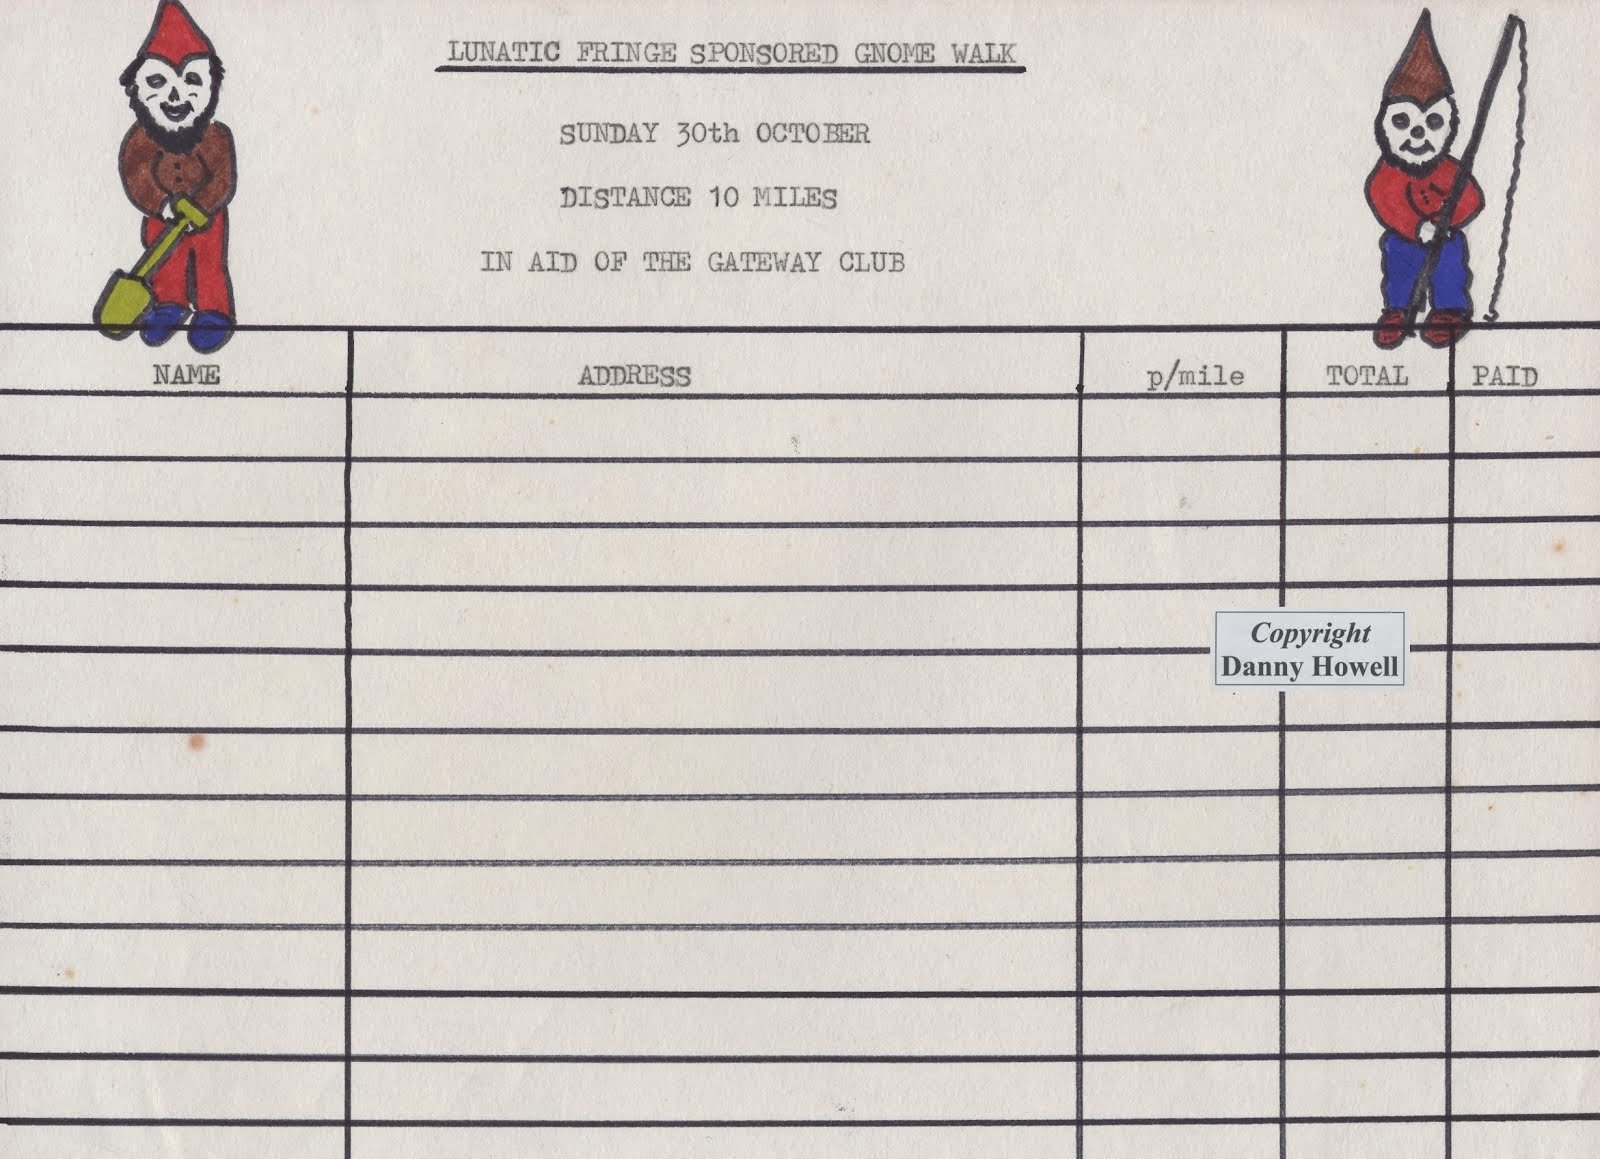 LUNATIC FRINGE SPONSORED GNOME WALK
SUNDAY 30th OCTOBER
DISTANCE 10 MILES
IN AID OF THE GATEWAY CLUB
NAME ADDRESS p/mile TOTAL PAID
Copyright
Danny Howell